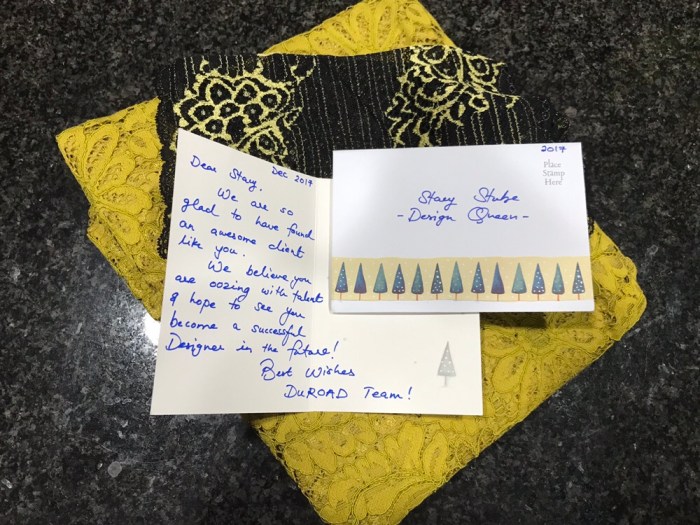 Dec 2017
Dear Stacy,
We are so
glad to have found
an awesome client
like you.
We believe you
are oozing with talent
& hope to see you
become a successful
Designer in the future!
Best Wishes
DUROAD Team!
2017
Place
Stamp
Here
Stacy Stube
-Design Queen-